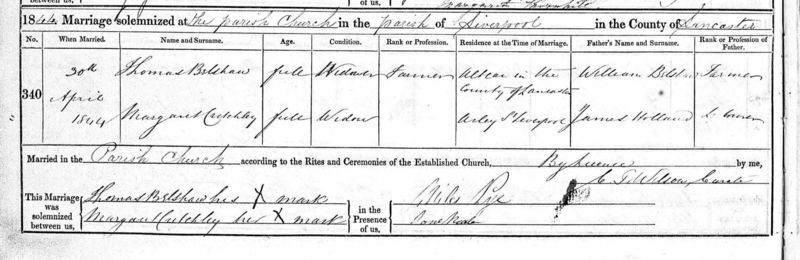 1844 Marriage solemnized at the Parish Church in the Parish of Liverpool in the County of Lancaster
No. When Married. Name and Surname. Age. Condition. Rank or Profession. Residence at the Time of Marriage. Father's Name and Surname. Rank or Profession of Father.
340 30th April 1844 Thomas Belshaw full Widower Farmer Altcar in the County of Lancaster William Belshaw Farmer
Margaret Critchley full Widow Arley St Liverpool James Holland
Married in the Parish Church according to the Rites and Ceremonies of the Established Church, By Licence by me,
Wilson Curate
This Marriage was solemnized between us, Thomas Belshaw his X mark
Margaret Critchley her X mark
in the Presence of us, Pye